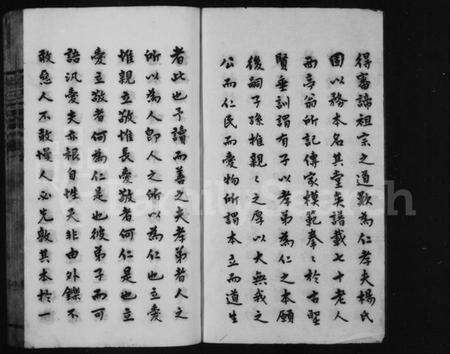 得審諦祖宗之道歟為仁孝夫楊氏
固以務本名其堂矣譜載七十老人
西亭翁所記傳家模範拳〻於古聖
賢垂訓謂有子以孝弟為仁之本願
後嗣子孫惟親〻之厚以大無我之
公而仁民而愛物所謂本立而道生
者此也予讀而善之夫孝弟者人之
所以為人即人之所以為仁也立愛
惟親立敬惟長愛敬者何仁是也立
愛立敬者何為仁是也彼弟子而可
語汎愛夫亦根自性天非由外鑠不
敢惡人不敢慢人必先敦其本於一